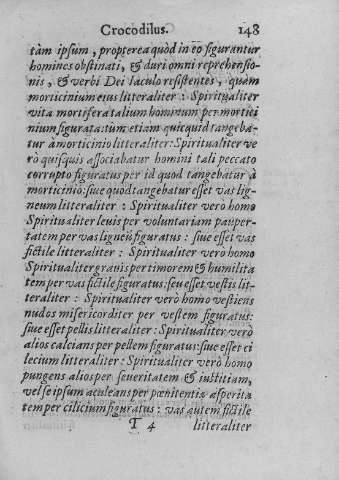 Crocodilus. 148
tàm ipsum, propterea quòd in eo figurantur
homines obstinati, & duri omni reprehensio-
nis, & verbi Dei iaculo resistentes, quàm
morticinium eius litteraliter: Spiritualiter
vita mortifera talium hominum per mortici
nium figurata: tùm etiam quicquid tangeba-
tur à morticinio litteraliter: Spiritualiter ve
rò quisquis associabatur homini tali peccato
corrupto figuratus per id quod tangebatur à
morticinio: siue quod tangebatur esset vas lig-
neum litteraliter: Spiritualiter verò homo
Spiritualiter leuis per voluntariam pauper-
tatem per vas ligneū figuratus: siue esset vas
fictile litteraliter: Spiritualiter verò homo
Spiritualiter grauis per timorem & humilita
tem per vas fictile figuratus: seu esset vestis lit-
teraliter: Spiritualiter verò homo vestiens
nudos misericorditer per vestem figuratus:
siue esset pellis litteraliter: Spiritualiter verò
alios calcians per pellem figuratus: siue esset ci
lecium litteraliter: Spiritualiter verò homo
pungens alios per seueritatem & iustitiam,
vel se ipsum aculeans per pœnitentiæ asperita
tem per cilicium figuratus: vas autem fictile
T 4 litteraliter